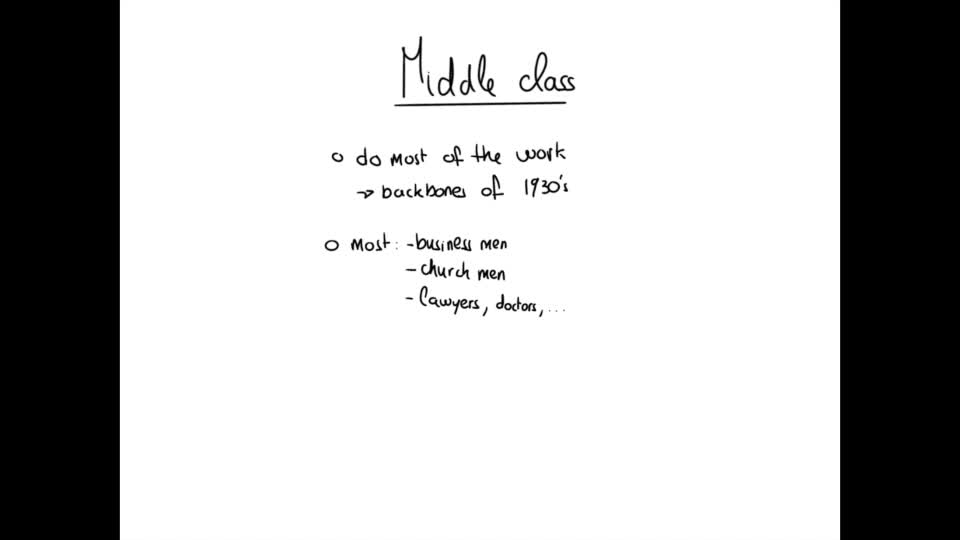 Middle class
o do most of the work
→ backbones of 1930's
o Most: - business men
- church men
- lawyers, doctors, ...